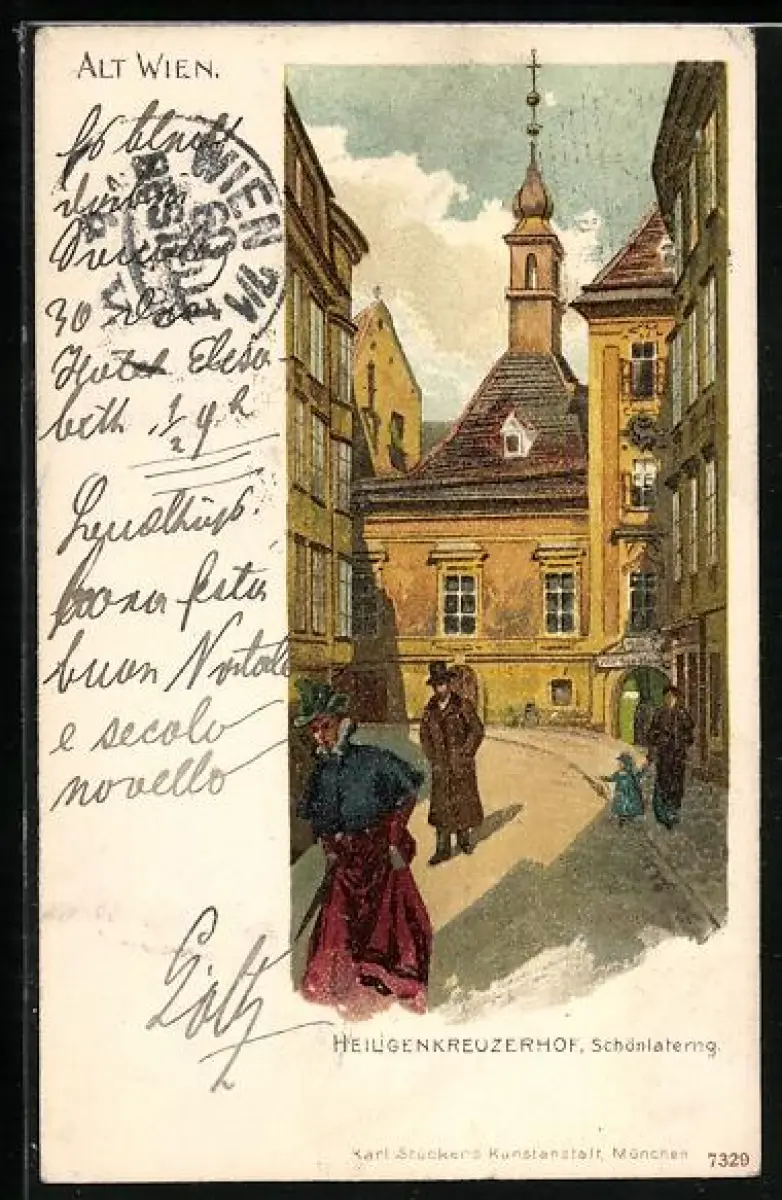 ALT WIEN.
Es bleibt
WIEN
30
Hotel Elisa-
beth ½ 4 h
buona festa
buon Natale
e secolo
novello
Götz
HEILIGENKREUZERHOF, Schönlaterng.
Karl Stückers Kunstanstalt, München 7329